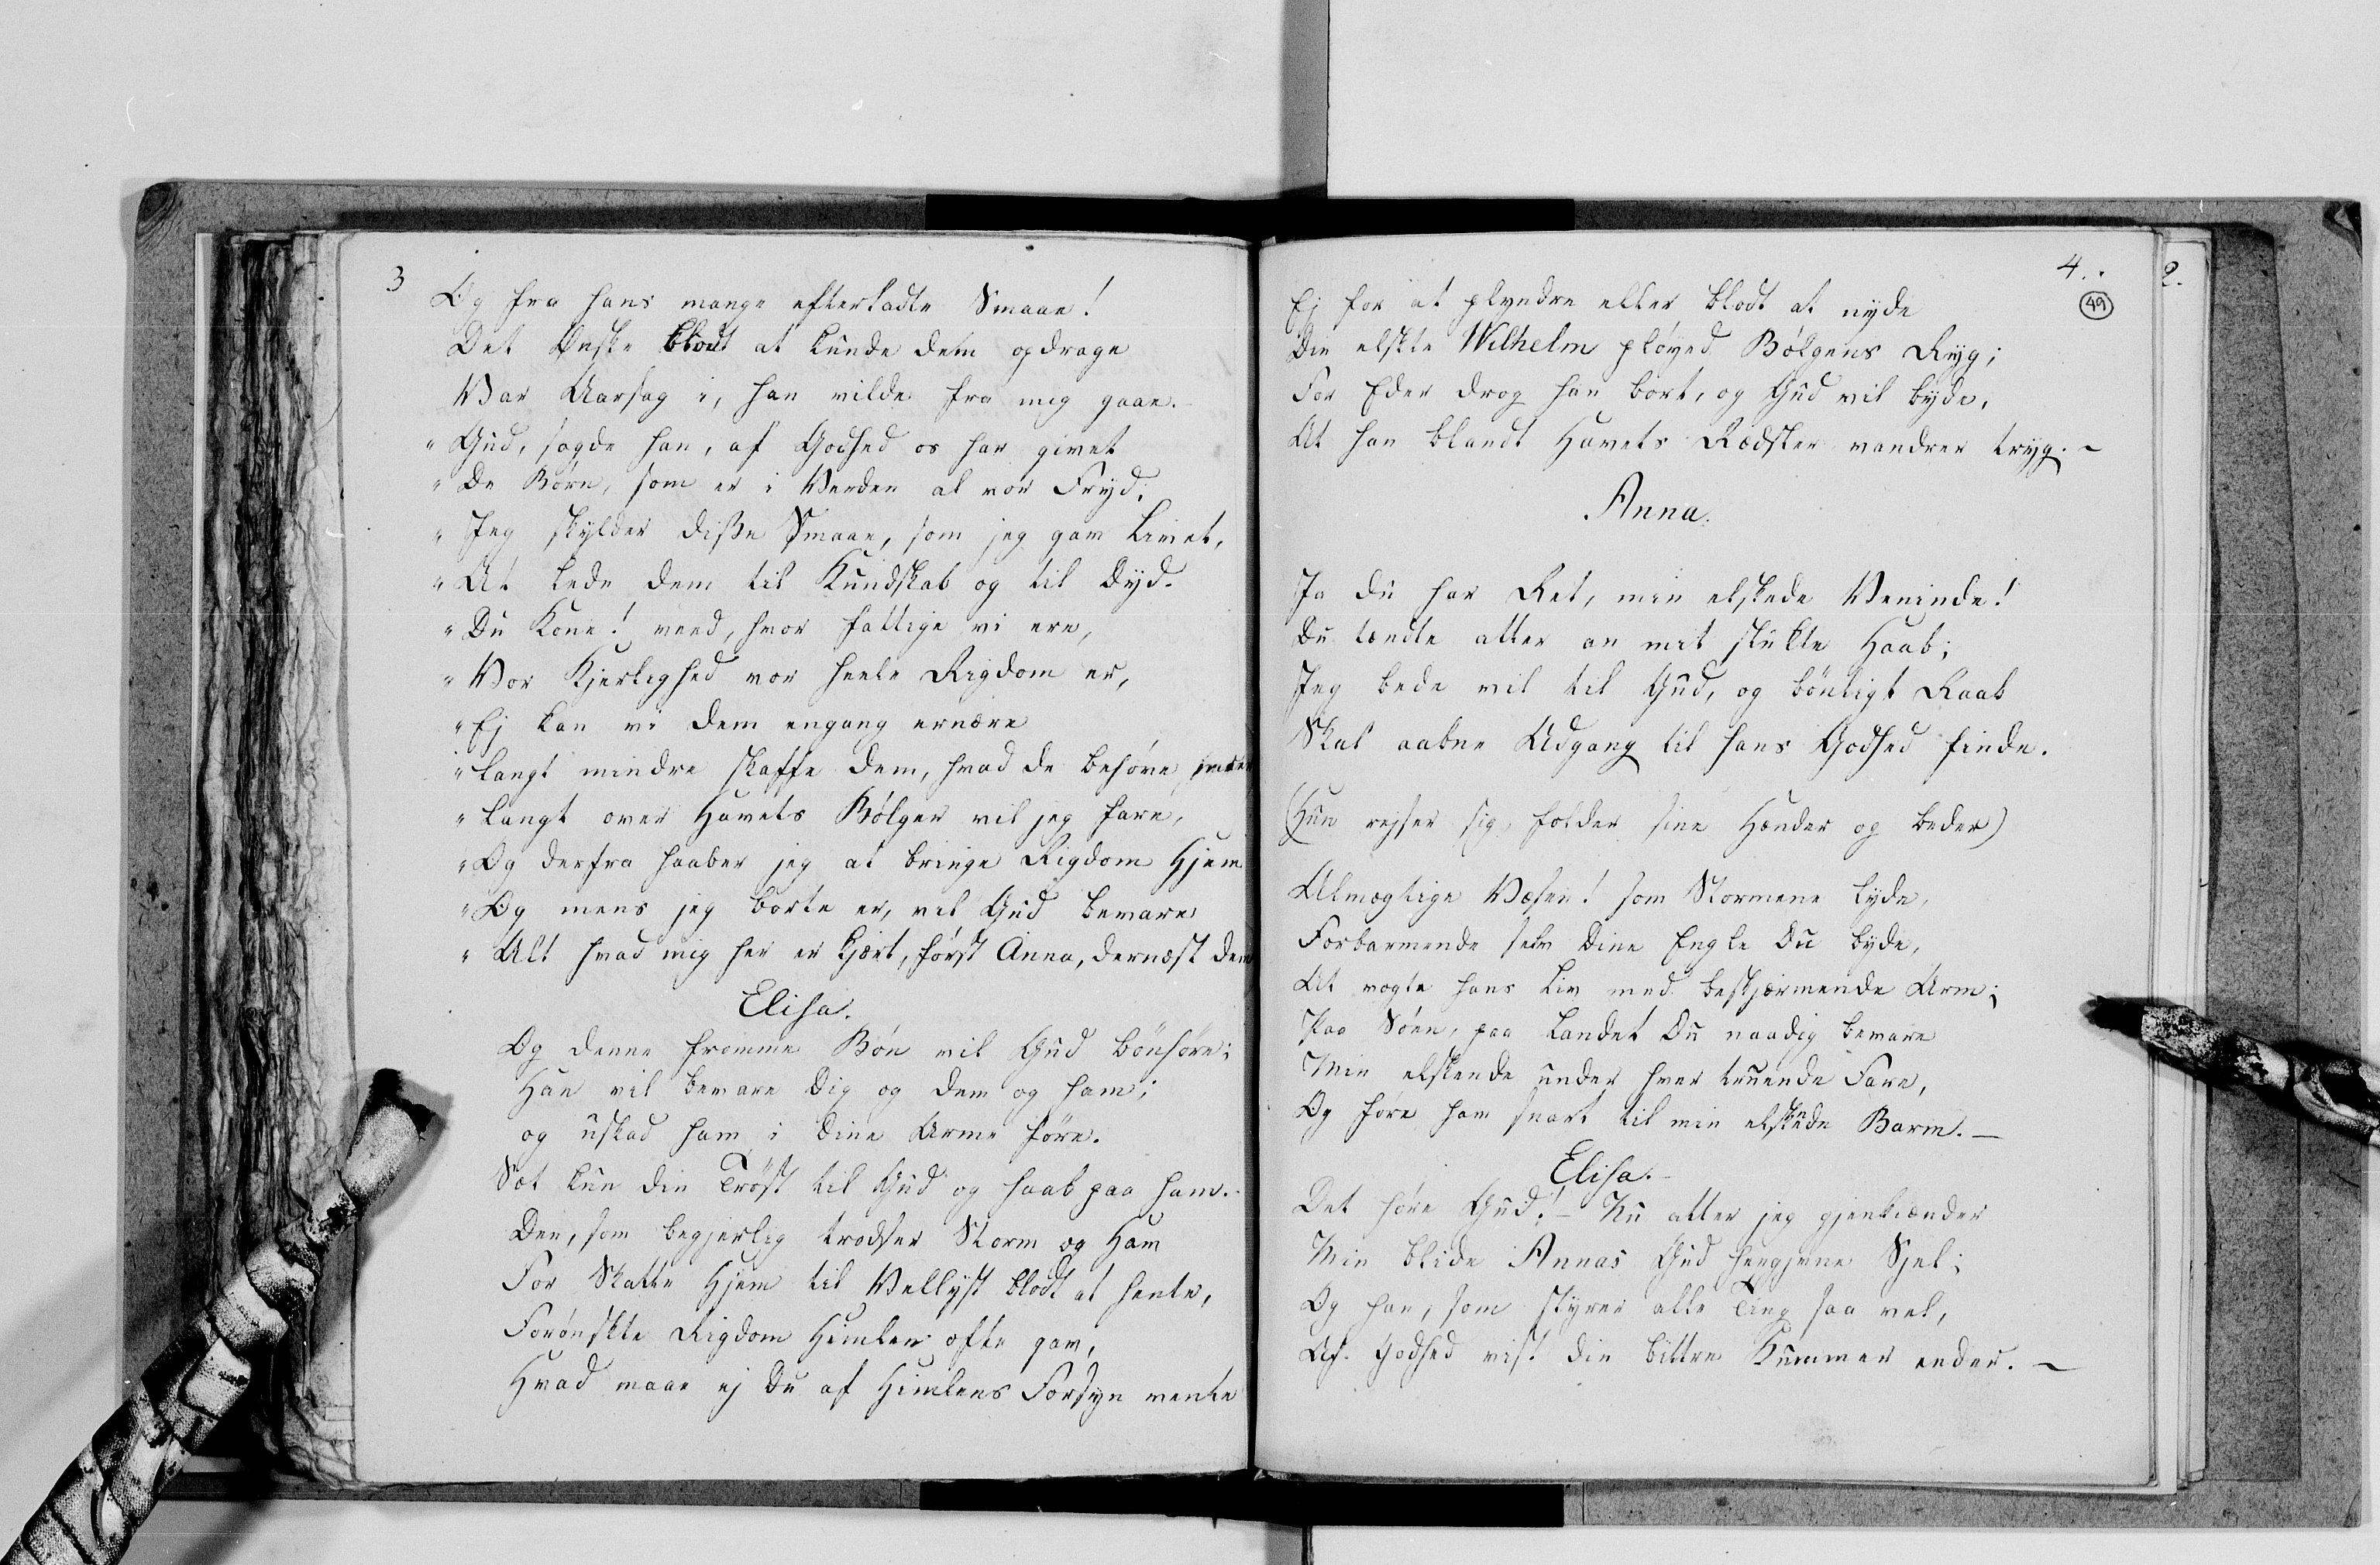 3
Og fra hans mange efterladte Smaae!
Det Ønske blodt at kunde dem opdrage
Var Aarsag i, han vilde fra mig gaae.
"Gud, sagde han, af Godhed os har givet
"De Börn, som er i Verden al vor Fryd;
"Jeg skylder disse Smaae, som jeg gav Livet,
"At lede dem til Kundskab og til Dyd.
"Du Kone! veed, hvor fattige vi ere,
"Vor Kjerlighed vor heele Rigdom er,
"Ej kan vi dem engang ernære
"langt mindre skaffe dem, hvad de behöve
"langt over Havets Bölger vil jeg fare,
"Og derfra haaber jeg at bringe Rigdom Hjem
"Og mens jeg borte er, vil Gud bevare
"Alt hvad mig her er kjært, först Anna, dernæst dem
Elisa.
Og denne fromme Bön vil Gud bönhöre;
Han vil bevare Dig og dem og ham;
og uskad ham i dine Arme före.
Sæt kun din Tröst til Gud og haab paa ham.
Den, som begjerlig trodser Storm og Hav
For Skatte Hjem til Vellyst blodt at hente,
Forönskte Rigdom Himlen ofte gav,
Hvad maae ej Du af Himlens Forsyn vente
4.
49
2.
Ej for at plyndre eller blodt at nyde
Din elskte Wilhelm plöyed Bölgens Ryg;
For Eder drog han bort, og Gud vil byde,
At han blandt Havets Rædsler vandrer tryg. –
Anna.
Ja du har Ret, min elskede Veninde!
Du tændte atter an mit slukte Haab;
Jeg bede vil til Gud, og bönligt Raab
Skal aabne Adgang til hans Godhed finde.
(Hun rejser sig, folder sine Hænder og beder)
Almægtige Væsen! som Stormene lyde,
Forbarmende selv Dine Engle Du byde,
At vogte hans Liv med beskjærmende Arm;
Paa Söen, paa Landet Du naadig bevare
Min elskende under hver truende Fare,
Og före ham snart til min elskende Barm. –
Elisa. –
Det höre Gud! – Nu atter jeg gjenkiænder
Min blide Annas Gud hengivne Sjel;
Og han, som styrer alle Ting saa vel,
Af Godhed vist din bittre Kummer ender. –